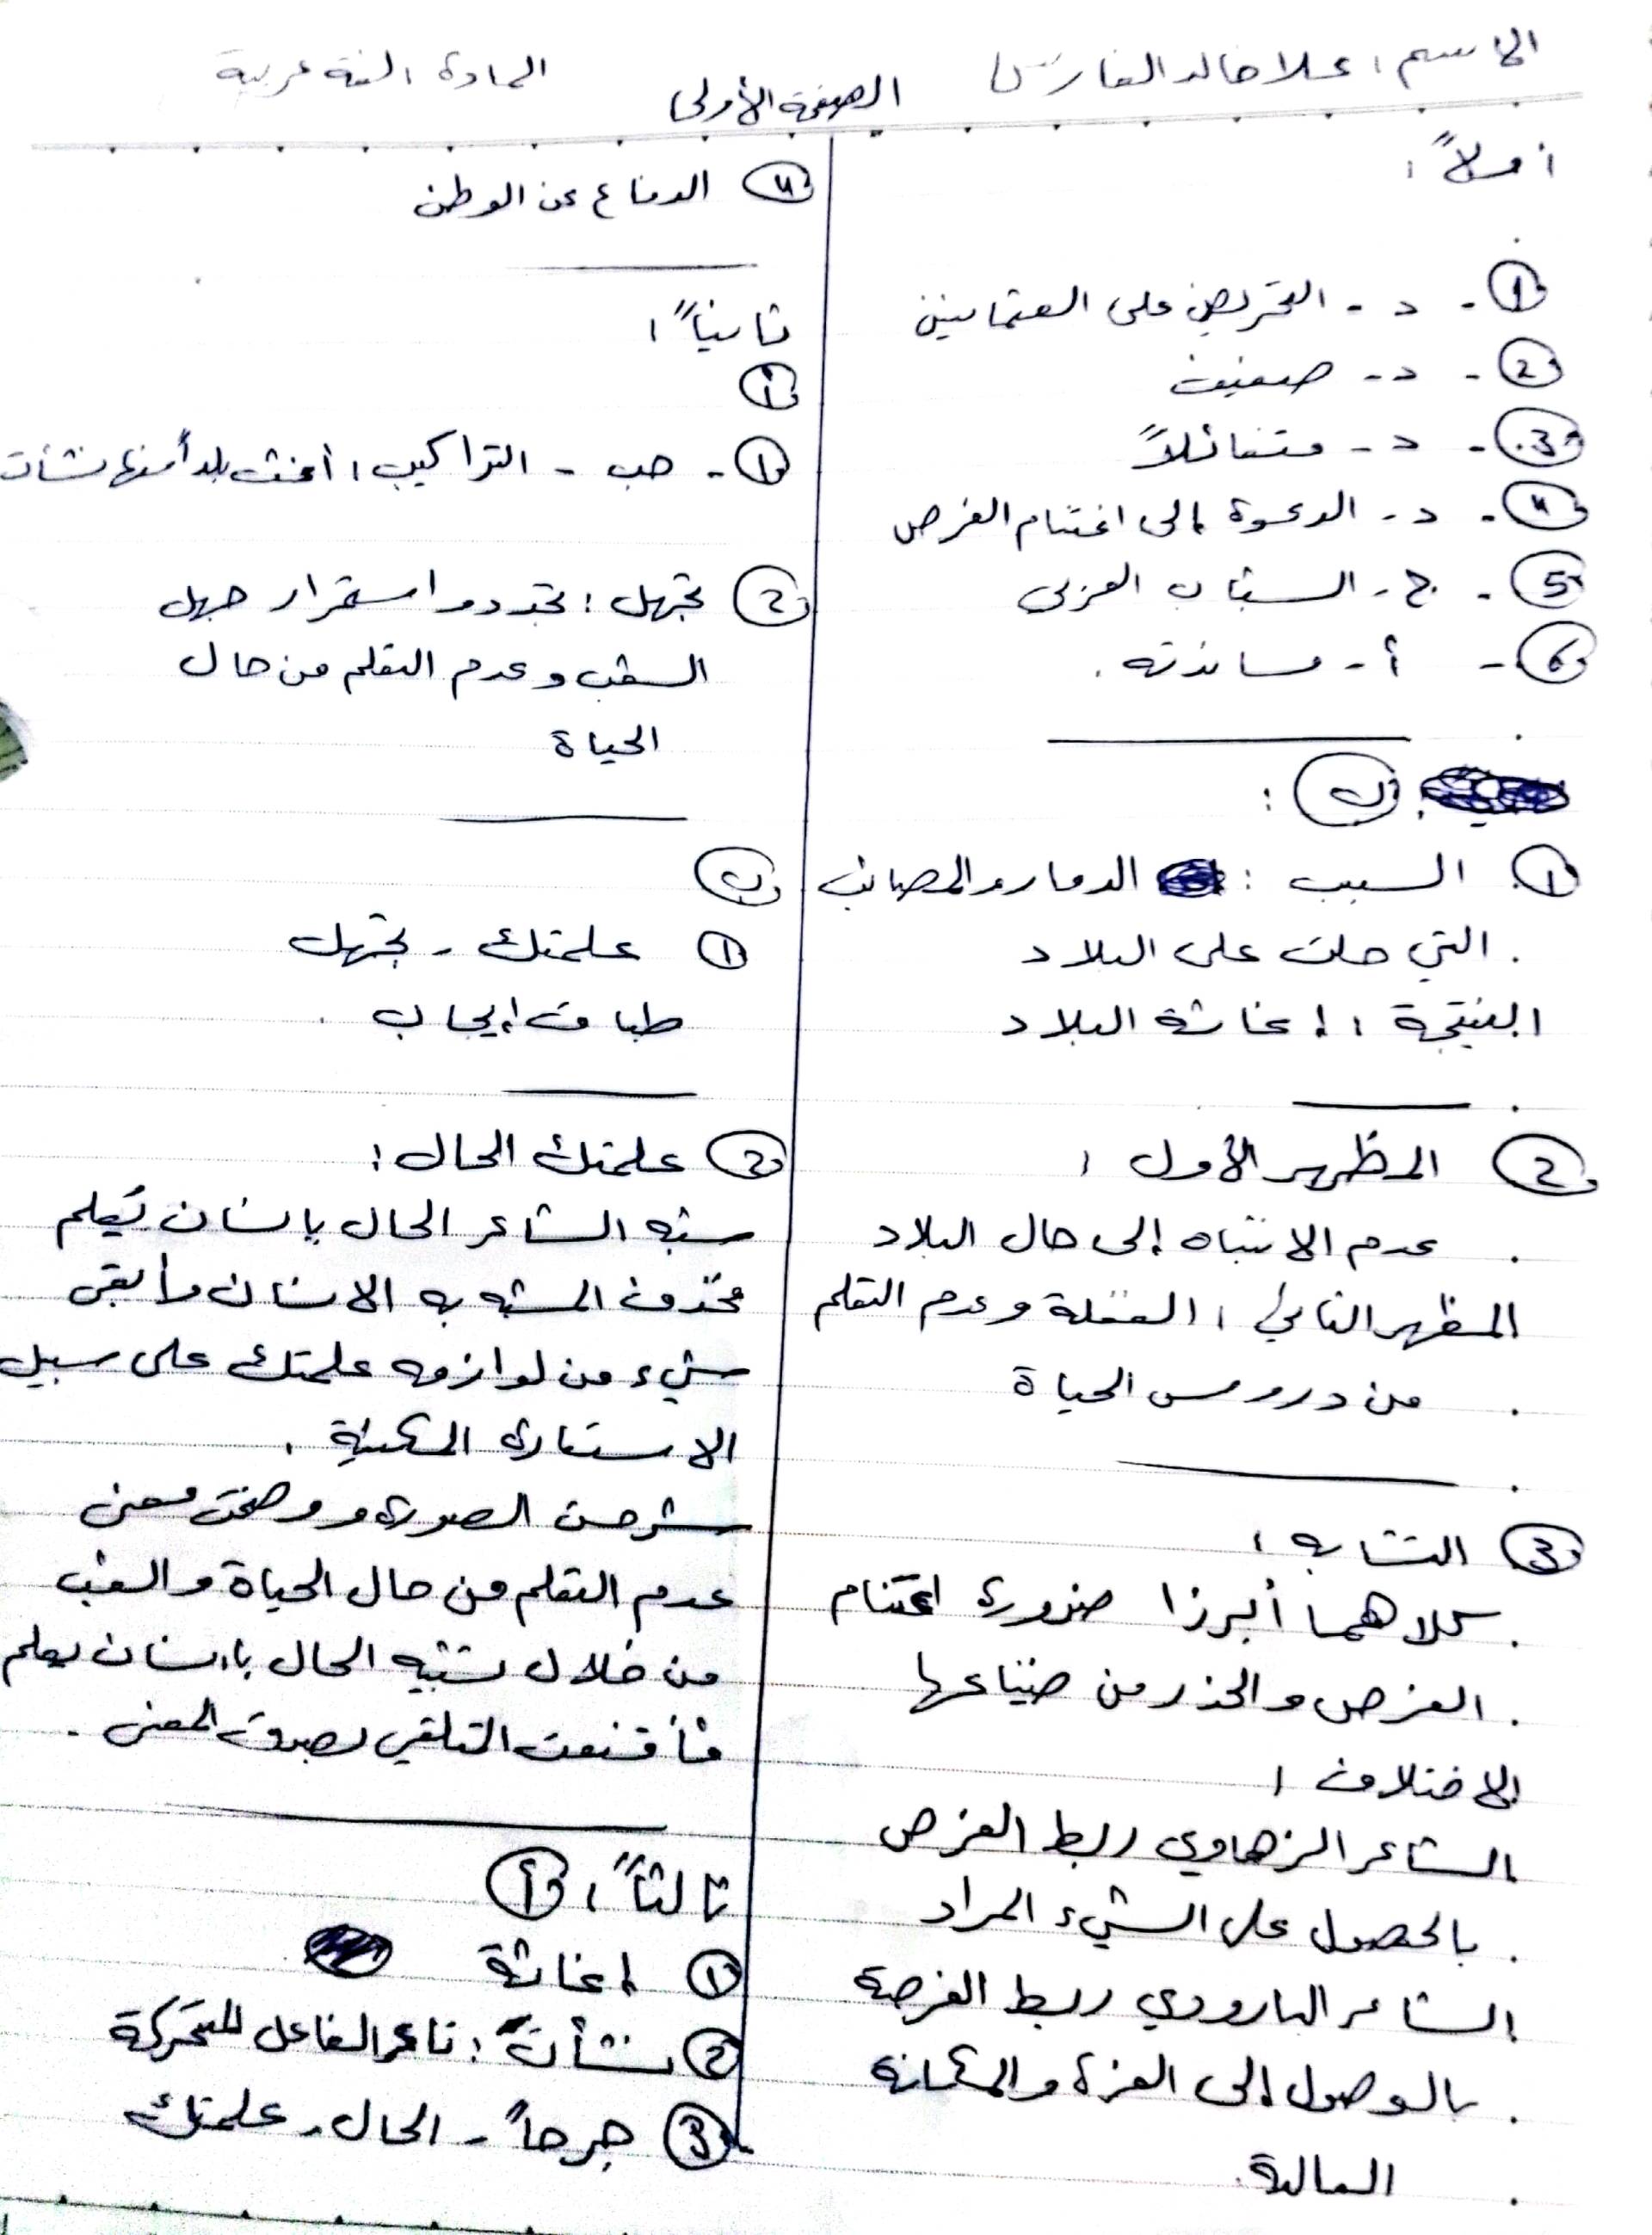 الاسم : علا خالد الفارس
المادة : الغة عربية
الصفحة الأولى
أولاً :
① - د - التحريض على العثمانيين
② - د - ضعيف
③ - د - متفائلاً
④ - د - الدعوة إلى اغتنام الفرص
⑤ - ج - الشباب العربي
⑥ - أ - مساندته .
ب :
① السبب : الدمار والمصائب
التي حلت على البلاد
النتيجة : إغاثة البلاد
② المظهر الأول :
عدم الانتباه إلى حال البلاد
المظهر الثاني : الغفلة وعدم التعلم
من دروس الحياة
③ التشابه :
كلاهما أبرزا ضرورة اغتنام
الفرص والحذر من ضياعها
الاختلاف :
الشاعر الزهاوي ربط الفرص
بالحصول على الشيء المراد
الشاعر البارودي ربط الفرصة
بالوصول إلى العزة والمكانة
العالية .
④ الدفاع عن الوطن
ثانياً :
أ
① - حب - التراكيب : أغث بلداً منها نشأت
② تجهل : تجدد واستمرار جهل
الشعب وعدم التعلم من حال
الحياة
ب
① علمتك - تجهل
طباق إيجاب
② علمتك الحال :
شبه الشاعر الحال بإنسان يُعلم
فحذف المشبه به الانسان وأبقى
شيء من لوازمه علمتك على سبيل
الاستعارة المكنية .
شرحت الصورة ووضحت معنى
عدم التعلم من حال الحياة والشعب
من خلال تشبيه الحال بإنسان يعلم
فأقنعت المتلقي بصدق المعنى .
ثالثاً : أ
① إغاثة
② نشأتَ : تاء الفاعل المتحركة
③ جرحاً - الحال - علمتك